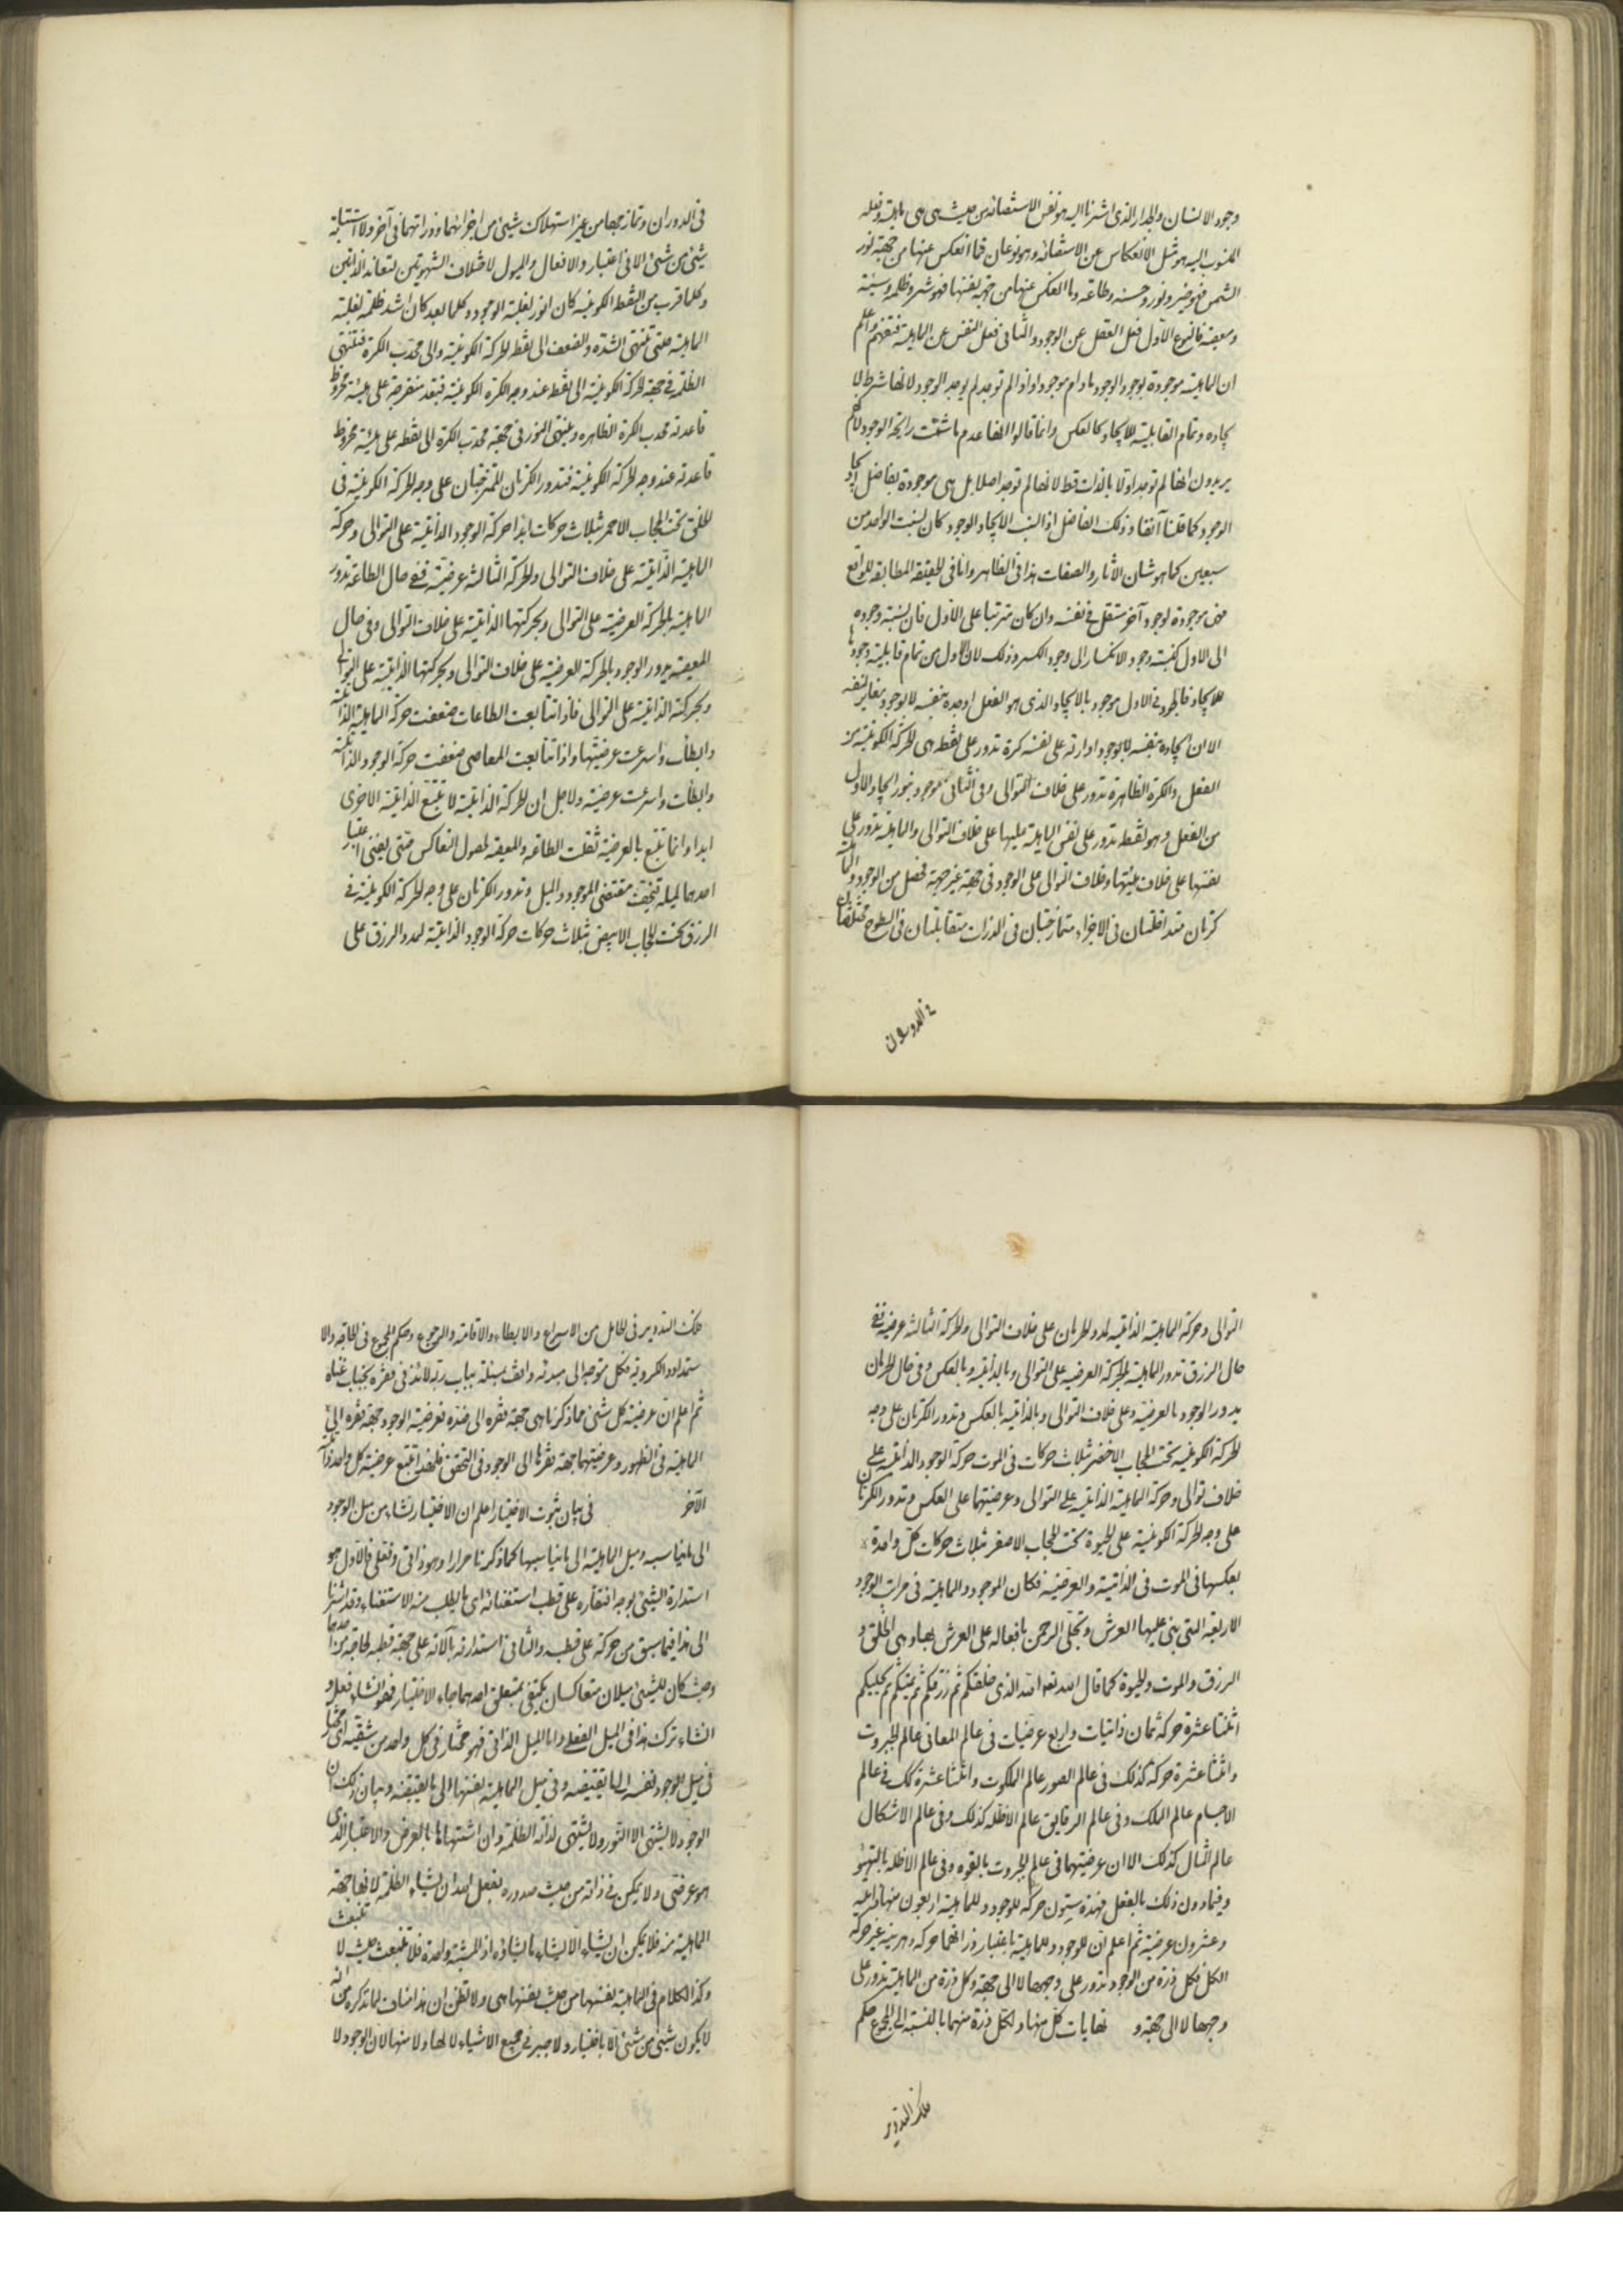 وجود الانسان والجدار الذى اشرنا اليه هو نفس الاستضائه من حيث هى هى ماهيته وفعله
المنسوب اليه هو مثل الانعكاس عن الاستضائه وهو نوعان فما انعكس عنها من جهة نور
الشمس فهو خير ونور وحسنه وطاعة وما انعكس عنها من جهة نفسها فهو شر وظلمه وسيئة
ومعصية فالنوع الاول فعل العقل عن الوجود والثانى فعل النفس عن الماهية فتفهم واعلم
ان الماهية موجودة بوجود الوجود مادام موجودا واذا لم توجد لم يوجد الوجود لانها شرط لا
يجاده وتمام القابلية للايجاد كالعكس وانما قالوا انها عدم ما شمت رايحة الوجود لانهم
يريدون انها لم توجد اولا بالذات قط لا انها لم توجد اصلا بل هى موجودة بفاضل ايجاد
الوجود كما قلنا آنفا وذلك الفاضل اذا نسب الايجاد الوجود كان نسبت الواحد من
سبعين كما هو شان الآثار والصفات هذا فى الظاهر واما فى الحقيقة المطابقة للواقع
فهى موجودة لوجود آخر مستقل فى نفسه وان كان مترتبا على الاول فان نسبة وجوده
الى الاول كنسبة وجود الانكسار الى وجود الكسر وذلك لان الاول من تمام قابلية وجودها
للايجاد فالوجود فى الاول موجود بالايجاد الذى هو الفعل اوجده بنفسه لا بوجود مغاير لنفسه
الا ان ايجاده بنفسه لا بوجود ادارته على نفسه كرة تدور على نقطه هى الحركة الكونية من
الفعل والكرة الظاهرة تدور على خلاف التوالى وفى الثانى موجود بنور ايجاد الاول
من الفعل وهو نقطه تدور على نفس الماهية ميلها على خلاف التوالى والماهية تدور على
نفسها على خلاف ميلها وخلاف التوالى على الوجود فى جهة غير جهة فحصل من الوجود والماهية
كرتان متداخلتان فى الاجزاء متمازجتان فى الذرات متقابلتان فى السطوح مختلفتان
فى الدوران
فى الدوران وتمازجهما من غير استهلاك شيئ من اجزائهما وذراتهما فى آخر ولا استتباه
شيئ من شيئ الا فى اعتبار والافعال والميول لاختلاف الشهوتين لتعاند الذاتين
وكلما قرب من النقطة الكونية كان انور لغلبة الوجود وكلما بعد كان اشد ظلمة لغلبة
الماهية حتى تنتهى الشدة والضعف الى نقطه الحركة الكونية والى محدب الكرة فتنتهى
الظلمة فى جهة الحركة الكونية الى نقطه عند وجه الكرة الكونية فتبعد منفرجة على هيئة مخروط
قاعدته محدب الكرة الظاهره وينتهى النور فى جهة محدب الكرة الى نقطه على هيئة مخروط
قاعدته عند وجه الحركة الكونية فتدور الكرتان الممتزجتان على وجه الحركة الكونية فى
الخلق تحت الحجاب الاحمر بثلاث حركات ابدا حركة الوجود الذاتية على التوالى وحركة
الماهية الذاتية على خلاف التوالى والحركة الثالثة عرضية ففى حال الطاعة تدور
الماهية بالحركة العرضية على التوالى وبحركتها الذاتية على خلاف التوالى وفى حال
المعصية يدور الوجود بالحركة العرضية على خلاف التوالى وبحركتها الذاتية على التوالى
وبحركته الذاتية على التوالى فاذا تتابعت الطاعات ضعفت حركة الماهية الذاتية
وابطأت واسرعت عرضيتها واذا تتابعت المعاصى ضعفت حركة الوجود الذاتية
وابطأت واسرعت عرضيته ولاجل ان الحركة الذاتية لا تتبع الذاتية الاخرى
ابدا وانما تتبع بالعرضية ثقلت الطاعة والمعصية لحصول التعاكس حتى يفنى اعتبار
احدهما لميله فيخف مقتضى الموجود والميل وتدور الكرتان على وجه الحركة الكونية فى
الرزق تحت الحجاب الابيض بثلاث حركات حركة الوجود الذاتية لمدد الرزق على
التوالى وحركة الماهية الذاتية لمدد الحرمان على خلاف التوالى والحركة الثالثة عرضية ففى
حال الرزق تدور الماهية بالحركة العرضية على التوالى وبالذاتية وبالعكس وفى حال الحرمان
يدور الوجود بالعرضية وعلى خلاف التوالى وبالذاتية بالعكس وتدور الكرتان على وجه
الحركة الكونية تحت الحجاب الاخضر بثلاث حركات فى الموت حركة الوجود الذاتية على
خلاف توالى وحركة الماهية الذاتية على التوالى وعرضيتهما على العكس وتدور الكرتان
على وجه الحركة الكونية على الحيوة تحت الحجاب الاصفر بثلاث حركات كل واحدة
بعكسها فى الموت فى الذاتية والعرضية فكان الموجود والماهية فى مراتب الوجود
الاربعة التى بنى عليها العرش وتجلى الرحمن بافعاله على العرش بها وهى الخلق و
الرزق والموت والحيوة كما قال الله تعا الله الذى خلقكم ثم رزقكم ثم يميتكم ثم يحييكم
اثنتا عشرة حركة ثمان ذاتيات واربع عرضيات فى عالم المعانى عالم الجبروت
واثنتا عشرة حركة كذلك فى عالم الصور عالم الملكوت واثنتا عشرة كك فى عالم
الاجسام عالم الملك وفى عالم الرقايق عالم الاظله كذلك وفى عالم الاشكال
عالم المثال كذلك الا ان عرضيتهما فى عالم الجبروت بالقوه وفى عالم الاظلة بالتهيؤ
وفيما دون ذلك بالفعل فهذه ستون حركة للوجود وللماهية اربعون منها ذاتيه
وعشرون عرضية ثم اعلم ان للوجود وللماهية باعتبار ذراتهما حركة جزئية غير حركة
الكل فكل ذرة من الوجود تدور على وجهها لا الى جهة وكل ذرة من الماهية تدور على
وجهها لا الى جهة و نهايات كل منها ولكل ذرة منهما بالنسبة الى المجموع حكم
فلك التدوير
فلك التدوير فى الحامل من الاسراع والابطاء والاقامة والرجوع وحكم المجموع فى الحاجة والا
ستمداد والكروية فكل متوجه الى مبدئه واقف بمسئلته بباب ربه لائذ فى فقره بجناب غناه
ثم اعلم ان عرضية كل شئ مما ذكرنا هى جهة فقره الى ضده فعرضية الوجود جهة فقره الى
الماهية فى الظهور وعرضيتها جهة فقرها الى الوجود فى التحقق فلهذا تتبع عرضية كل واحد ذاتية
الآخر فى بيان ثبوت الاختيار اعلم ان الاختيار نشاء من ميل الوجود
الى ما يناسبه وميل الماهية الى ما يناسبها كما ذكرنا مرارا وهو ذاتى وفعلى فالاول هو
استدارة الشيئ بوجه افتقاره على قطب استغنائه اى ما يطلب منه الاستغناء وقد اشرنا
الى هذا فيما سبق من حركة على قطبه والثانى استدارته بآلاته على جهة قطبه لحاجة من احدهما
وحيث كان للشيئ ميلان متعاكسان يكتفى بمتعلق احدهما جاء الاختيار فهو ان شاء فعل و
ان شاء ترك هذا فى الميل الفعلى واما الميل الذاتى فهو مختار فى كل واحد من شقيه اى مختار
فى ميل الوجود نفسه الى ما يقتضيه وفى ميل الماهية نفسها الى ما يقتضيه وبيان ذلك ان
الوجود لا يشتهى الا النور ولا يشتهى لذاته الظلمة وان اشتهاها بالعرض والاعتبار الذى
هو عرضى ولا يمكن فى ذاته من حيث صدوره بفعل الله ان يشاء الظلمة لانها جهة
الماهية منه فلا يمكن ان يشاء الا يشاء ما يشاؤه اذ المشية واحدة فلا تنبعث حيث لا تنبعث
وكذا الكلام فى الماهية نفسها من حيث نفسها هى ولا تظن ان هذا مناف لما نذكره من انه
لا يكون شيئ من شيئ الا باختيار ولا جبر فى جميع الاشياء لا لها ولا منها لان الوجود لا